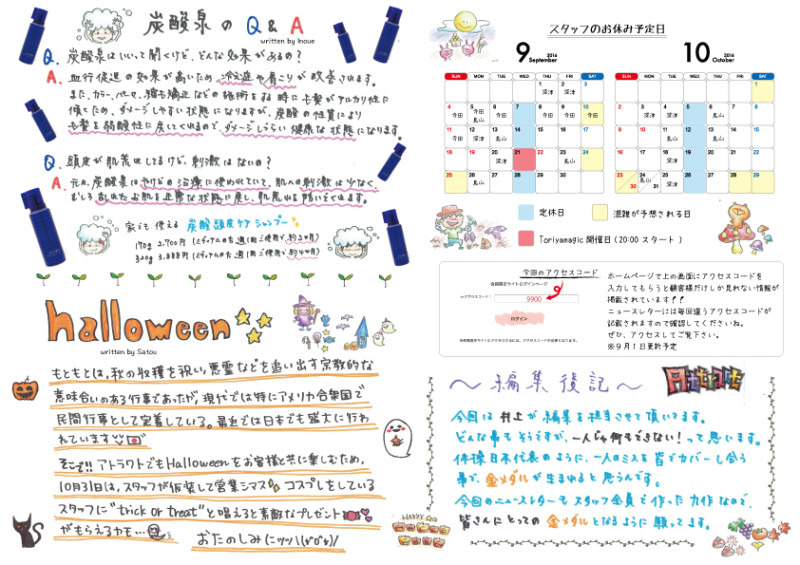 炭酸泉の Q & A
written by Inoue
Q. 炭酸泉はいいって聞くけど、どんな効果があるの？
A. 血行促進の効果が高いため、冷え症や肩こりが改善されます。
また、カラー、パーマ、縮毛矯正などの施術をする時に毛髪がアルカリ性に
傾くため、ダメージしやすい状態になりますが、炭酸の性質により
毛髪を弱酸性に戻してくれるので、ダメージしづらい健康な状態になります。
Q. 頭皮が肌荒れしてるけど、刺激はないの？
A. 元々、炭酸泉はやけどの治療に使われていて、肌への刺激は少なく、
むしろ、乱れたお肌を正常な状態に戻し、肌荒れを防いでくれます。
家でも使える 炭酸頭皮ケアシャンプー
170g 2,700円
320g 3,888円
halloween
written by Satou
もともとは、秋の収穫を祝い、悪霊などを追い出す宗教的な
意味合いのある行事であったが、現代では特にアメリカ合衆国で
民間行事として定着している。最近では日本でも盛大に行わ
れています
そこで!! アトラクトでもHalloweenをお客様と共に楽しむため、
10月31日は、スタッフが仮装して営業シマス コスプレをしている
スタッフに"trick or treat"と唱えると素敵なプレゼント
がもらえるカモ…
おたのしみに
スタッフのお休み予定日
9 2016 September
SUN MON TUE WED THU FRI SAT
1 深津 2 深津 3
4 寺田 5 寺田 鳥山 6 寺田 7 8 寺田 9 寺田 10 寺田
11 深津 12 鳥山 13 深津 14 15 16 17
18 19 20 深津 21 22 23 鳥山 24
25 26 鳥山 27 28 29 30
10 2016 October
SUN MON TUE WED THU FRI SAT
1
2 3 深津 4 深津 5 6 鳥山 7 8
9 10 11 鳥山 12 13 14 15
16 17 18 深津 19 20 21 22
23 30 24 31 鳥山 25 深津 26 27 28 29
定休日
混雑が予想される日
Toriyamagic 開催日 (20:00 スタート )
今回のアクセスコード
会員限定サイトログインページ
アクセスコード：
9900
ログイン
ホームページで上の画面にアクセスコードを
入力してもらうと顧客様だけしか見れない情報が
掲載されています！！
ニュースレターには毎回違うアクセスコードが
記載されますので確認してくださいね。
ぜひ、アクセスしてご覧下さい。
※９月１日更新予定
〜編集後記〜
今回は 井上が 編集を担当させて頂いてます。
どんな事もそうですが、一人じゃ何もできない！って思います。
体操日本代表のように、一人のミスを皆でカバーし合う
事で、金メダルが生まれると思うんです。
今回のニュースレターも スタッフ全員で作った力作なので、
皆さんにとっての 金メダルとなるように 願ってます。